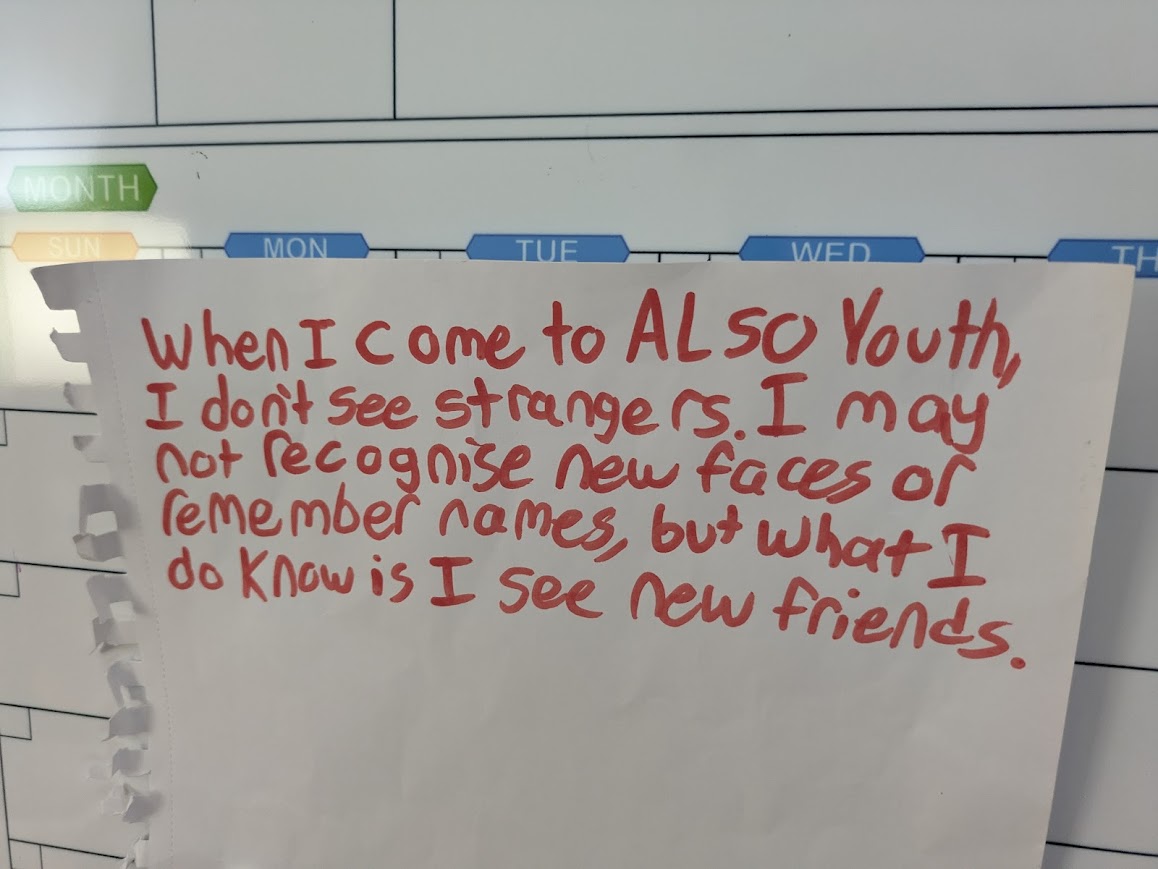 MONTH
SUN MON TUE WED TH
When I come to ALSO Youth,
I don't see strangers. I may
not recognise new faces or
remember names, but what I
do know is I see new friends.